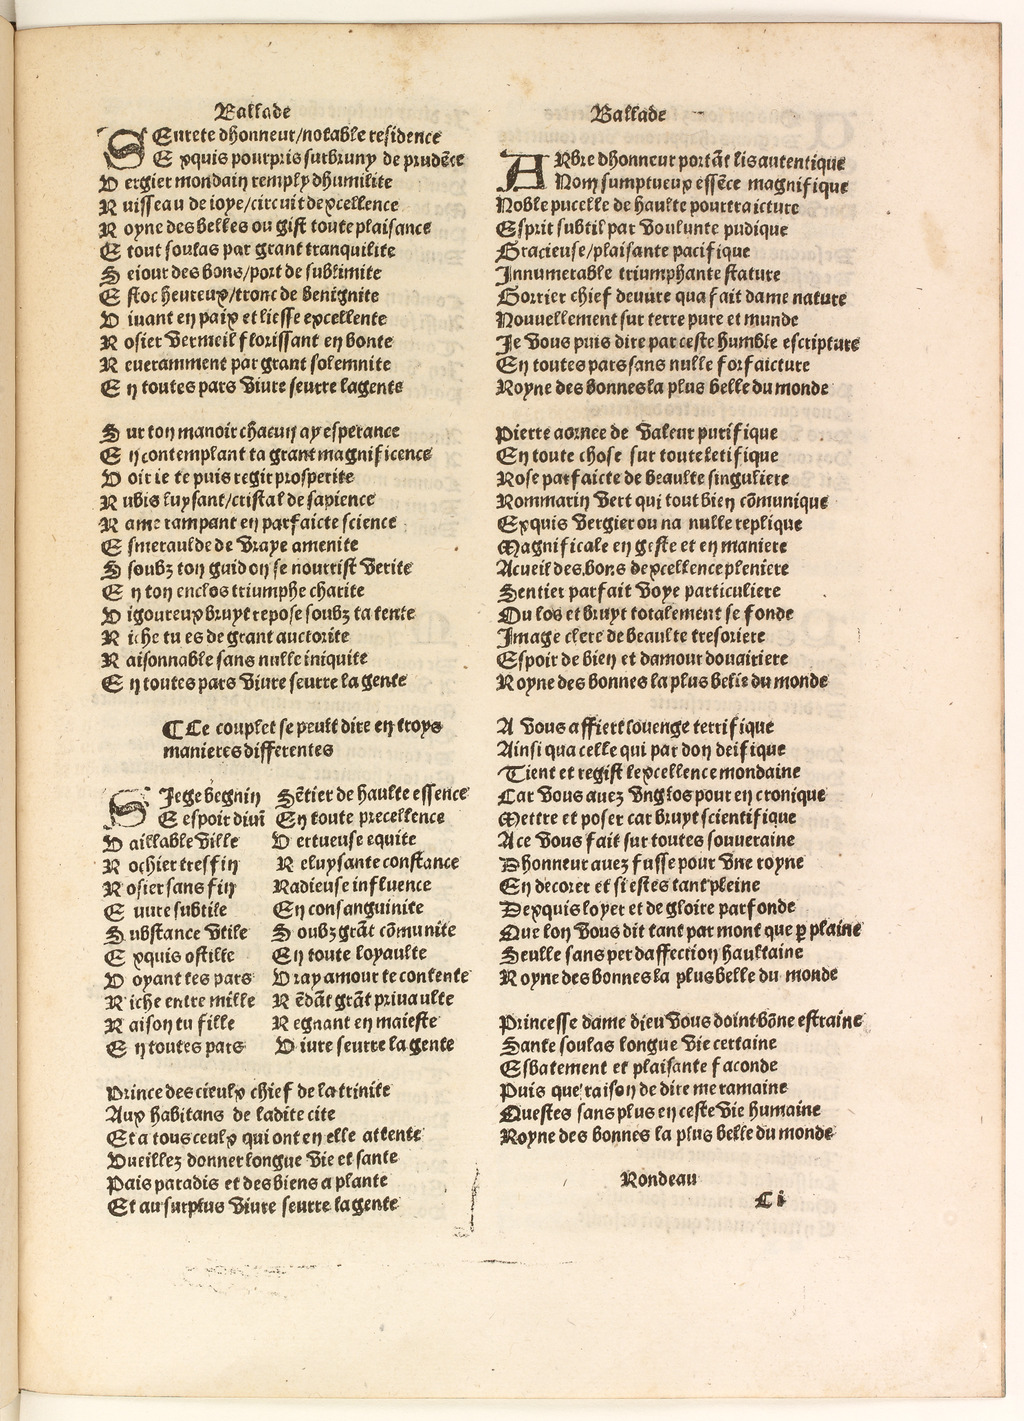 Ballade
SEurete dhonneur/notable residence
E xquis pourpris surbruny de prudẽce
V ergier mondain remply dhumilite
R uisseau de ioye/circuit dexcellence
R oyne des belles ou gist toute plaisance
E tout soulas par grant tranquilite
S eiour des bons/port de sublimite
E stoc heureux/tronc de benignite
V iuant en paix et liesse excellente
R osier vermeil florissant en bonte
R eueramment par grant solemnite
E n toutes pars viure seurre la gente

S ur ton manoir chacun ay esperance
E n contemplant ta grant magnificence
V oir ie te puis regir prosperite
R ubis luysant/cristal de sapience
R ame rampant en parfaicte science
E smeraulde de vraye amenite
S soubz ton guidon se nourrist verite
E n ton enclos triumphe charite
V igoureux bruyt repose soubz ta tente
R iche tu es de grant auctorite
R aisonnable sans nulle iniquite
E n toutes pars viure seurre la gente

¶Le couplet se peult dire en troys
manieres differentes

SIege begnin Sẽtier de haulte essence
E espoir diuĩ En toute precellence
V aillable ville V ertueuse equite
R ochier tresfin R eluysante constance
R osier sans fin Radieuse influence
E uure subtile En consanguinite
S ubstance vtile S oubz grãt cõmunite
E xquis ostille En toute loyaulte
V oyant tes pars V ray amour te contente
R iche entre mille R ẽdãt grãt priuaulte
R aison tu fille R egnant en maieste
E n toutes pars V iure seurre la gente

Prince des cieulx chief de la trinite
Aux habitans de ladite cite
Et a tous ceulx qui ont en elle attente
Vueillez donner longue vie et sante
Pais paradis et des biens a plante
Et au surplus viure seurre la gente

Ballade
ARbre dhonneur portãt lis autentique
Nom sumptueux essẽce magnifique
Noble pucelle de haulte pourtraicture
Esprit subtil par voulunte pudique
Gracieuse/plaisante pacifique
Innumerable triumphante stature
Gorrier chief deuure qua fait dame nature
Nouuellement sur terre pure et munde
Je vous puis dire par ceste humble escripture
En toutes pars sans nulle forfaicture
Royne des bonnes la plus belle du monde

Pierre aornee de valeur purifique
En toute chose sur toute letifique
Rose parfaicte de beaulte singuliere
Rommarin vert qui tout bien cõmunique
Exquis vergier ou na nulle replique
Magnificale en geste et en maniere
Acueil des bons dexcellence pleniere
Sentier parfait voye particuliere
Ou los et bruyt totalement se fonde
Image clere de beaulte tresoriere
Espoir de bien et damour douairiere
Royne des bonnes la plus belle du monde

A vous affiert louenge terrifique
Ainsi qua celle qui par don deifique
Tient et regist lexcellence mondaine
Car vous auez vng los pour en cronique
Mettre et poser car bruyt scientifique
Ace vous fait sur toutes souueraine
Dhonneur auez fusse pour vne royne
En decorer et si estes tant pleine
Dexquis loyer et de gloire parfonde
Que lon vous dit tant par mont que ꝑ plaine
Seulle sans per daffection haultaine
Royne des bonnes la plus belle du monde

Princesse dame dieu vous doint bõne estraine
Sante soulas longue vie certaine
Esbatement et plaisante faconde
Puis que raison de dire me ramaine
Questes sans plus en ceste vie humaine
Royne des bonnes la plus belle du monde

Rondeau
C i